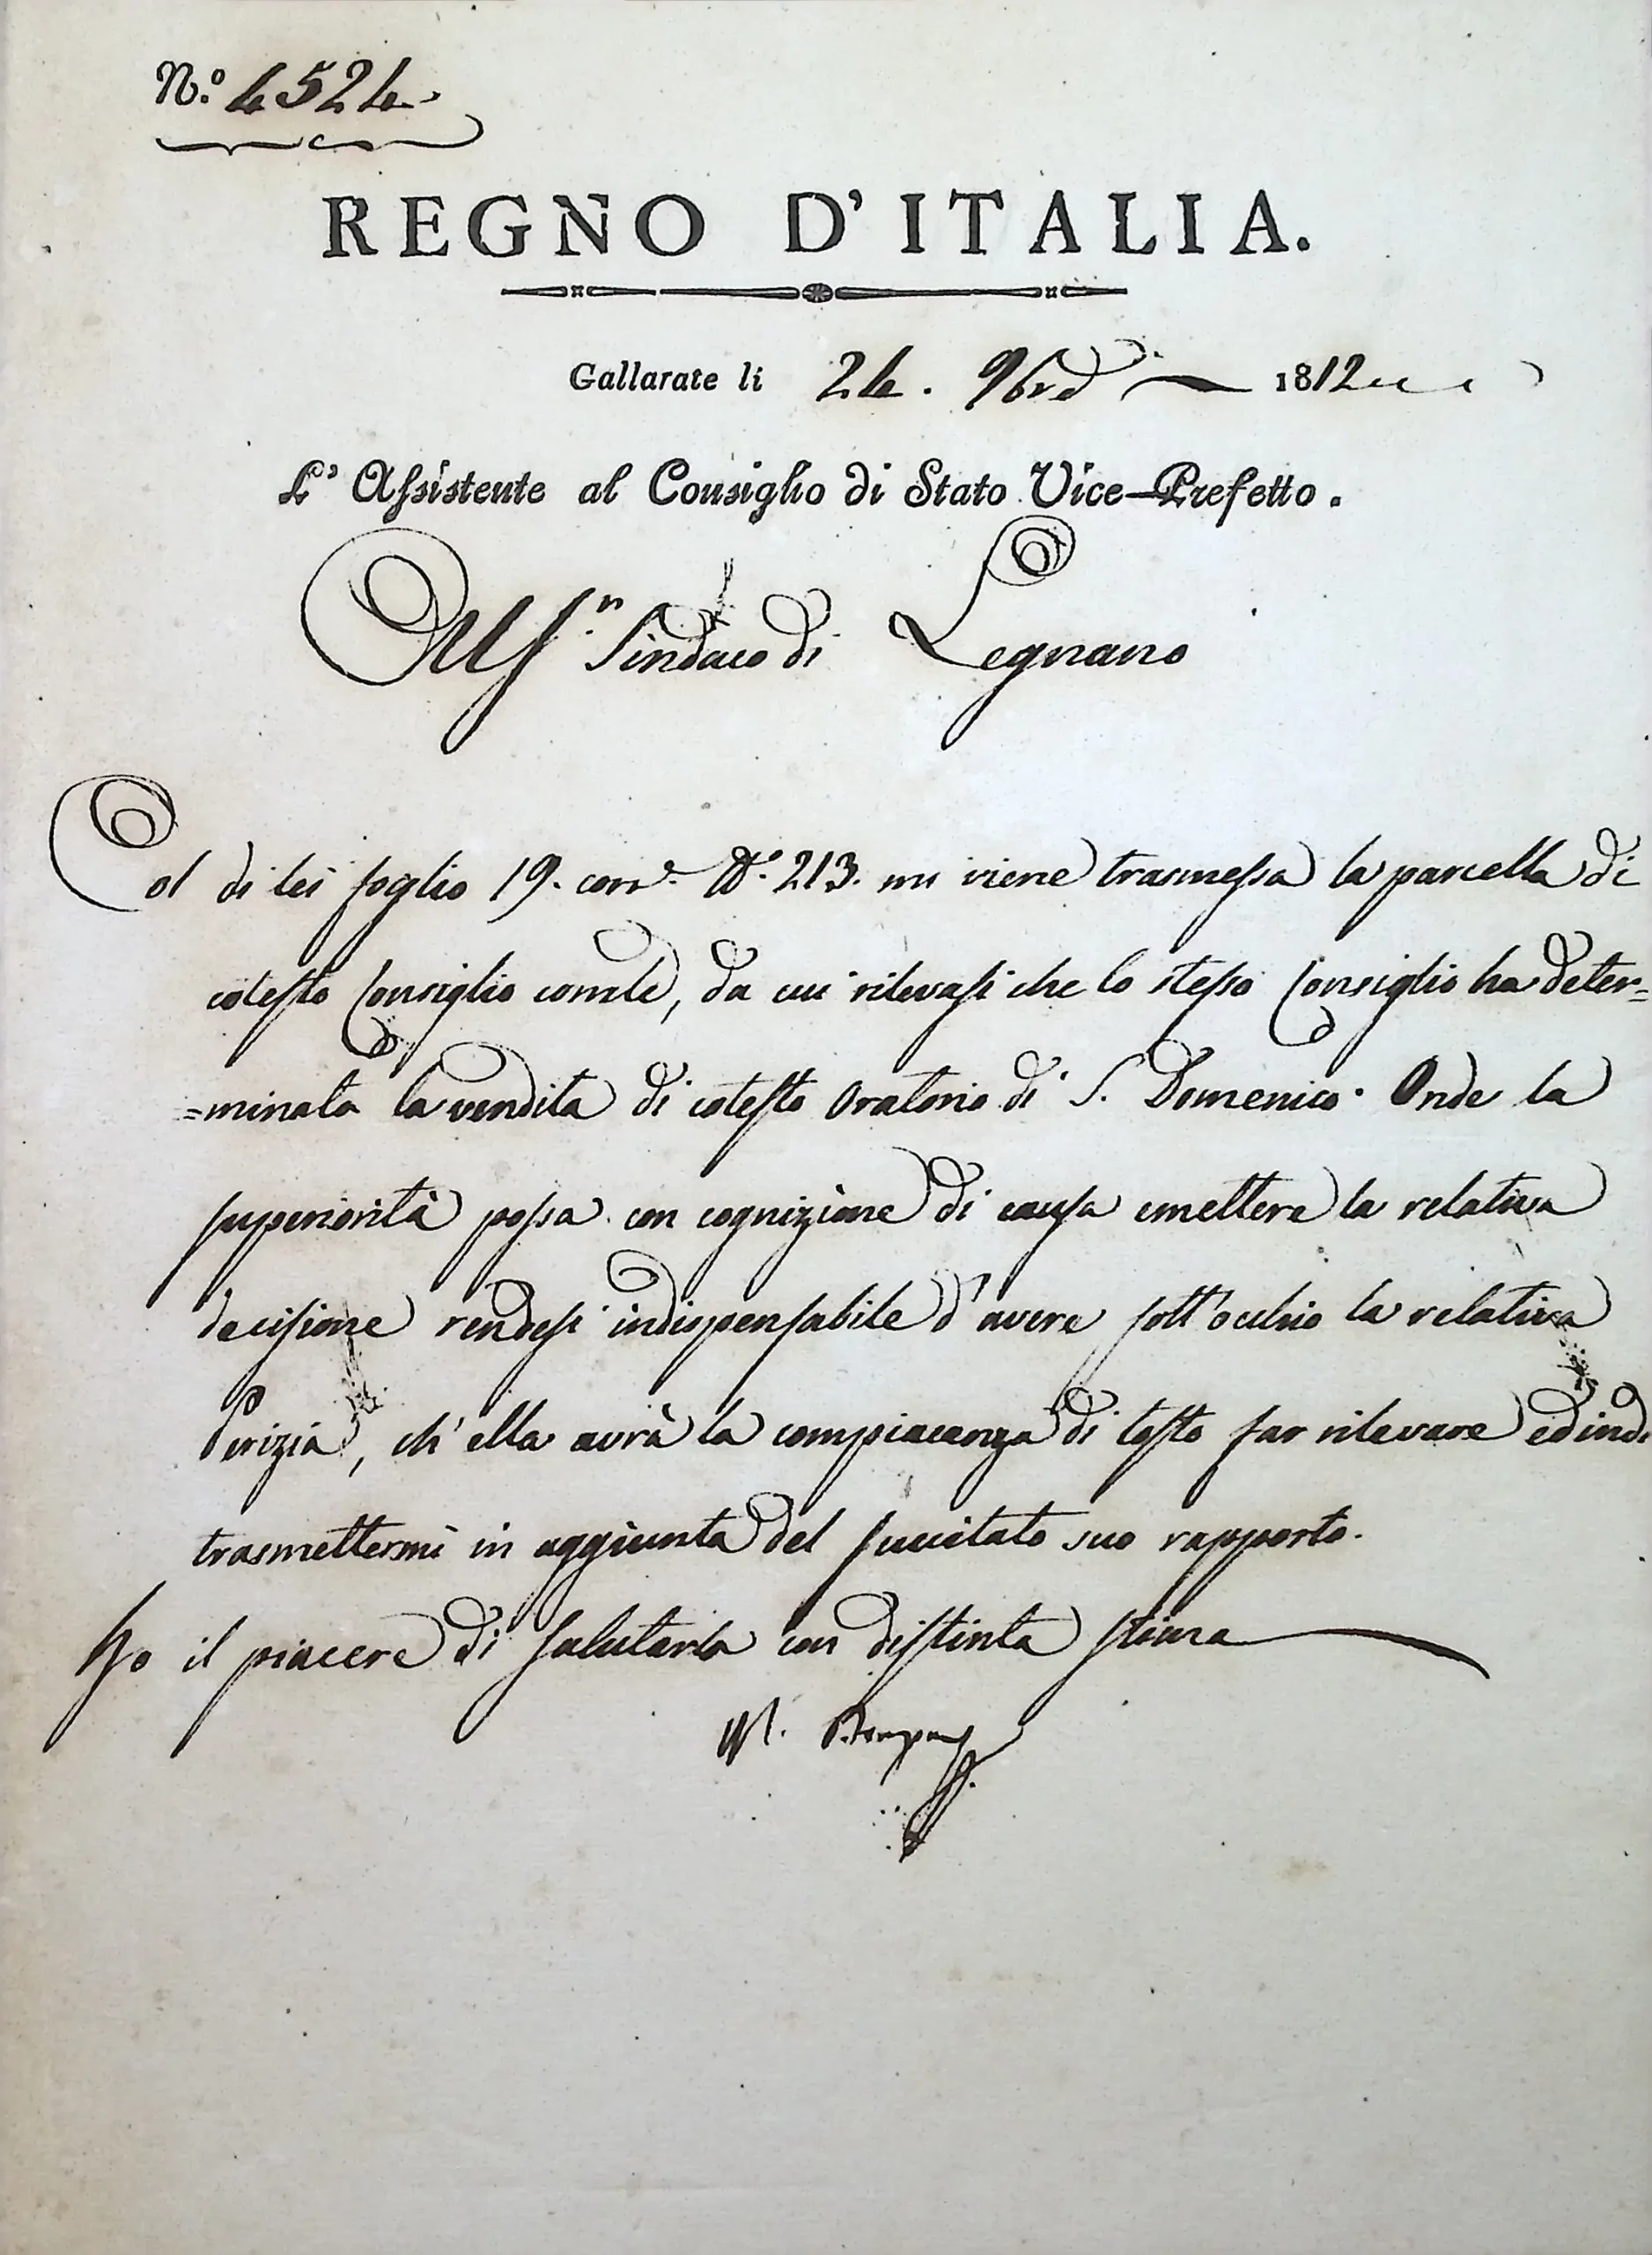 N.º 4524.
REGNO D'ITALIA.
Gallarate li 24. 9bre 1812
L'Assistente al Consiglio di Stato Vice-Prefetto.
Al S.r Sindaco di Legnano
Col di lei foglio 19. corr.e N.º 213. mi viene trasmessa la parcella di
cotesto Consiglio comle, da cui rilevasi che lo stesso Consiglio ha deter=
=minata la vendita di cotesto Oratorio di S. Domenico. Onde la
superiorità possa con cognizione di causa emettere la relativa
decisione rendesi indispensabile d'avere sott'occhio la relativa
Perizia, ch'ella avrà la compiacenza di tosto far rilevare ed indi
trasmettermi in aggiunta del succitato suo rapporto.
Ho il piacere di salutarla con distinta stima